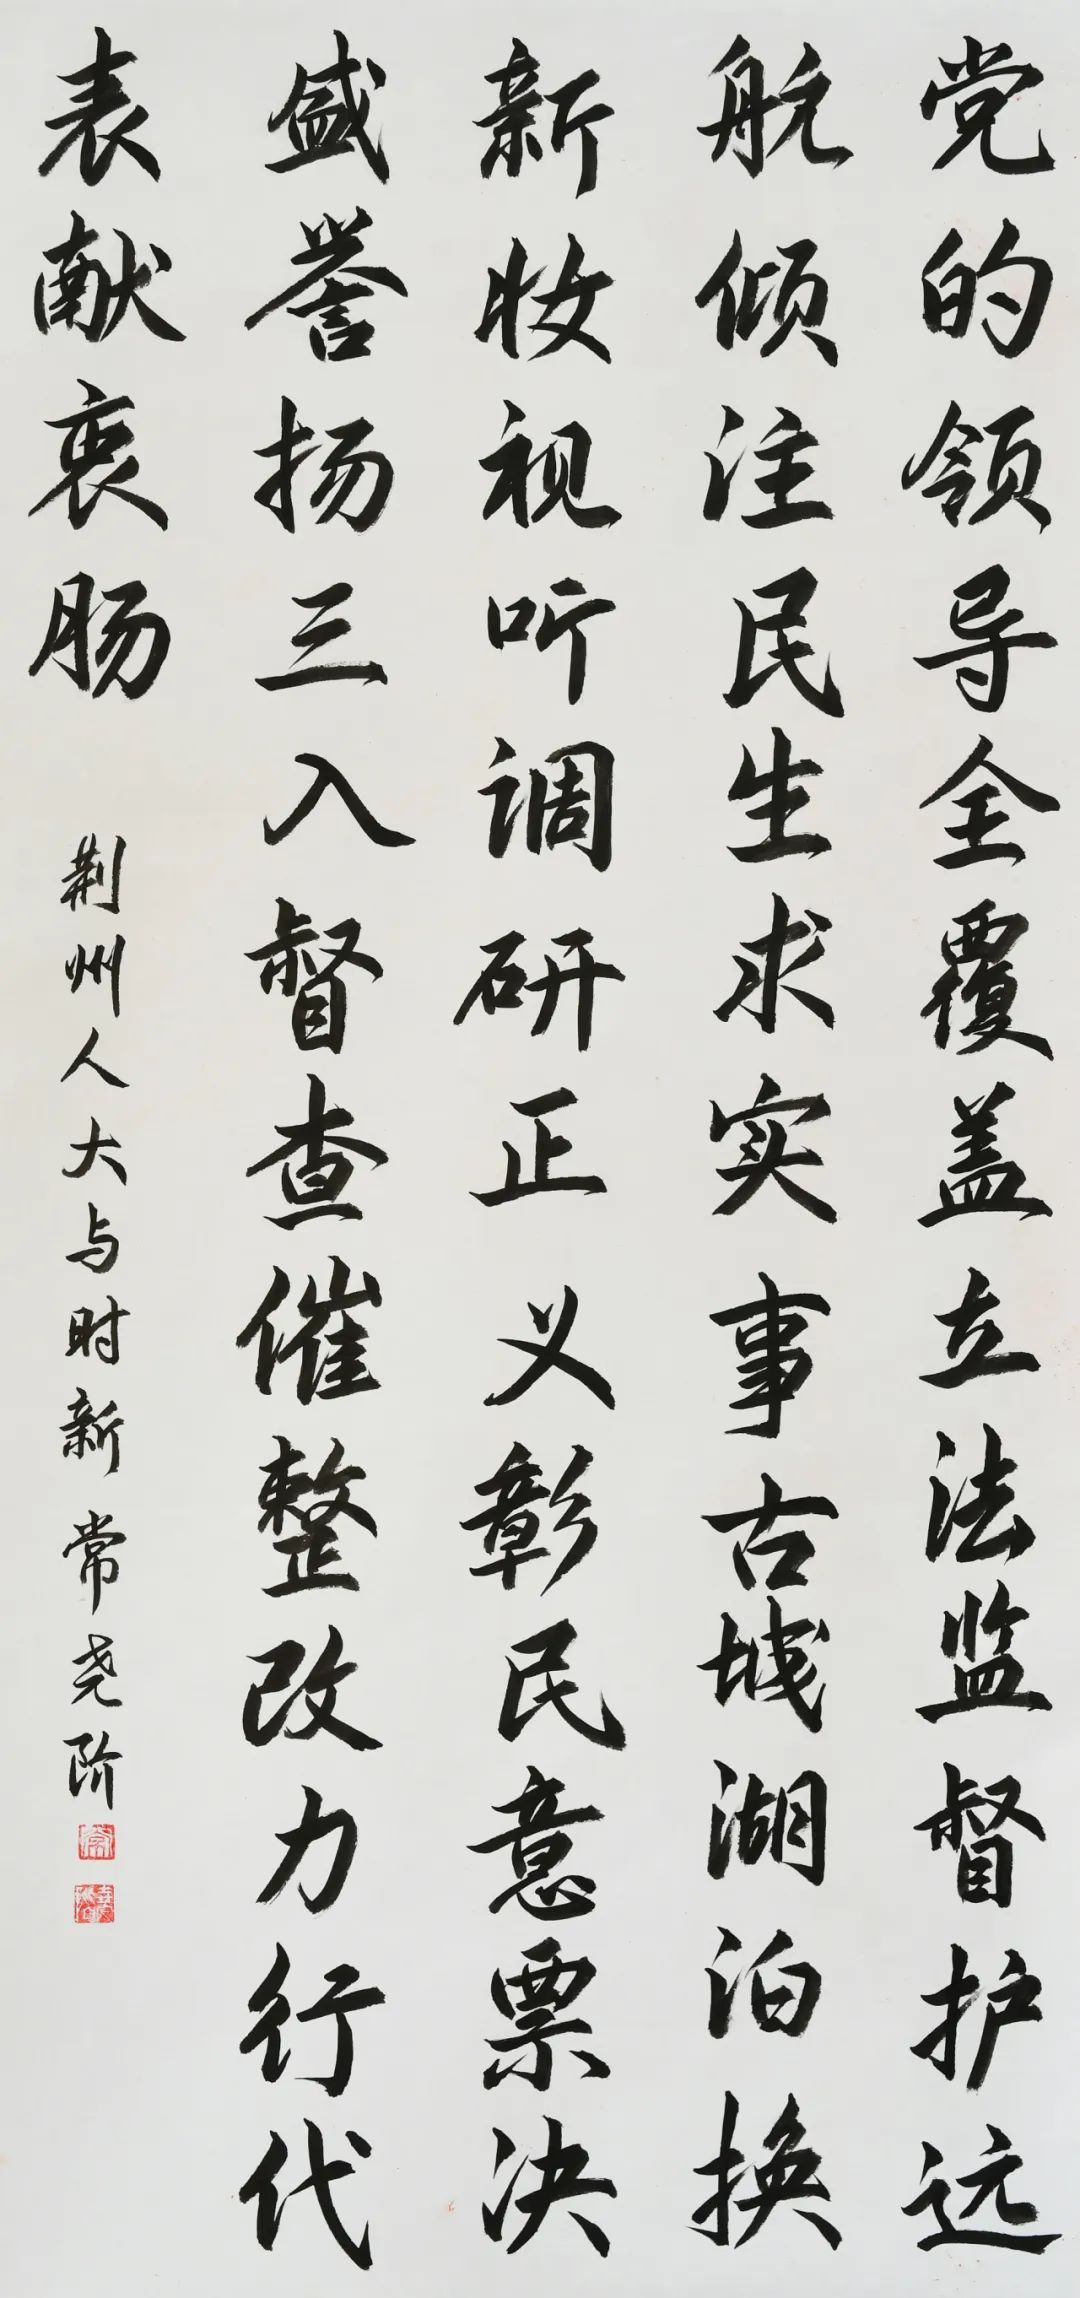 党的领导全覆盖立法监督护远
航倾注民生求实事古城湖泊换
新妆视听调研正义彰民意票决
盛誉扬三入督查催整改力行代
表献衷肠
荆州人大与时新 常尧阶